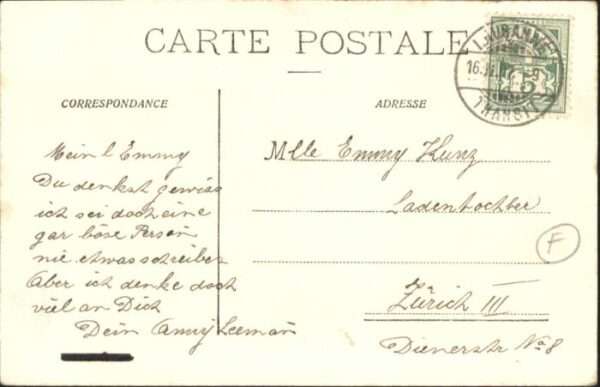 CARTE POSTALE
CORRESPONDANCE
ADRESSE
LAUSANNE
16.
TRANSIT
5
Mein l Emmy
Du denkst gewiss
ich sei doch eine
gar böse Person
nie etwas schreiben
Aber ich denke doch
viel an Dich
Dein Anny Leeman
Mlle Emmy Kunz
Ladentochter
Zürich III
Dienerstr No 8
F